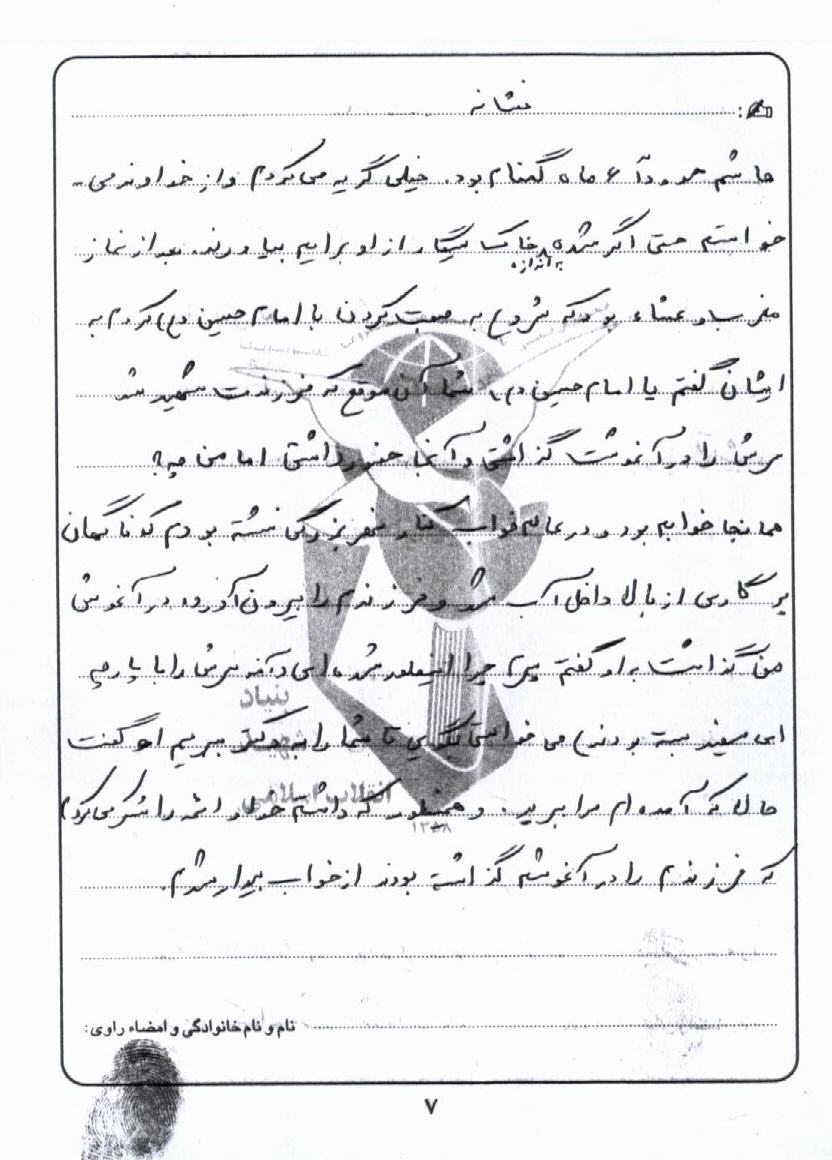 نشانه
هاشم حدوداً ۶ ماه گمنام بود. خیلی گریه می‌کردم و از خداوند می
خواستم حتی اگر شده به اندازه خاک سیگار از او برایم بیاورند. بعد از نماز
مغرب و عشاء بود که شروع به صحبت کردن با امام حسین (ع) کردم به
ایشان گفتم یا امام حسین (ع) شما آن موقع که فرزندت شهید شد
سرش را در آغوشت گذاشتی و آنجا حضور داشتی اما من چه؟
همانجا خوابم برد و در عالم خواب کنار نهر بزرگی نشسته بودم که ناگهان
پرنگاری از بالا داخل آب شد و فرزندم را بیرون آورد و در آغوش
من گذاشت به او گفتم پسرم چرا اینطور شده‌ای (آخه سرش را با پارچه
ای سفید بسته بودند) می خواستی بگویی تا شما را به دکتر ببریم او گفت
حالا که آمده‌ام مرا ببرید. و همینطور که داشتم خدا را شکر می‌کردم
که فرزندم را در آغوشم گذاشته بودند از خواب بیدار شدم.
بنیاد
شهید
انقلاب اسلامی
۱۳۵۸
نام و نام خانوادگی و امضاء راوی:
۷